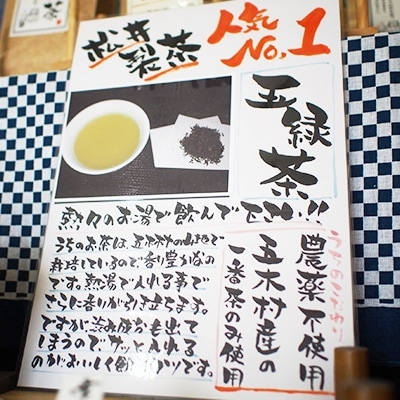 松井製茶
人気No,1
玉緑茶
熱々のお湯で飲んで下さい!!
うちのお茶は、五木村の山地で
栽培しているので、香り豊かなの
です。熱湯で入れる事で
さらに香りが引き立てます。
ですが、渋み成分も出て
しまうのでサッと入れる
のがおいしく飲むコツです。
うちのこだわり
農薬不使用
五木村産の
一番茶のみ使用
茶